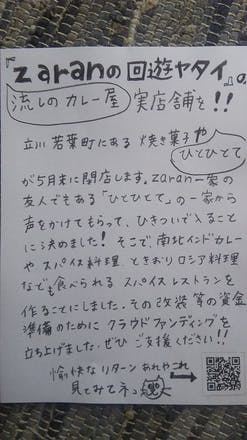 『zaranの回遊ヤタイ』の
流しのカレー屋 実店舗を!!
立川 若葉町にある 焼き菓子や
ひとひとて
が5月末に閉店します。zaran一家の
友人でもある「ひとひとて」の一家から
声をかけてもらって、ひきついで入ること
に決めました!そこで、南北インドカレー
や スパイス料理 ときおりロシア料理
なども食べられる スパイスレストランを
作ることにしました。その改装等の資金
準備のために クラウドファンディングを
立ち上げました。ぜひ ご支援ください!!
愉快なリターン あれやこれ
見てみてネっ